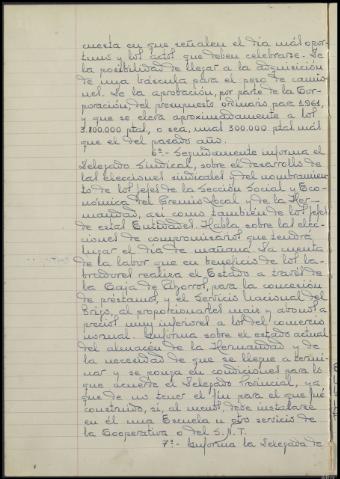 cuesta en que señalen el día más opor-
tuno y los actos que deben celebrarse. De
la posibilidad de llegar a la adquisición
de una báscula para el peso de camio-
nes. De la aprobación, por parte de la Cor-
poración, del presupuesto ordinario para 1961,
y que se eleva aproximadamente a los
3.800.000 ptas, o sea, unas 300.000 ptas más
que el del pasado año.
6º.- Seguidamente informa el
Delegado Sindical, sobre el desarrollo de
las elecciones sindicales y del nombramien-
to de los Jefes de la Sección Social y Eco-
nómica del Gremio Local y de la Her-
mandad, así como también de los Jefes
de estas Entidades. Habla sobre las elec-
ciones de compromisarios que tendrá
lugar el día de mañana. Da cuenta
de la labor que en beneficio de los la-
bradores realiza el Estado a través de
la Caja de Ahorros, para la concesión
de préstamos, y el Servicio Nacional del
Trigo, al proporcionarles maíz y abonos a
precios muy inferiores a los del comercio
normal. Informa sobre el estado actual
del almacén de la Hermandad y de
la necesidad de que se llegue a termi-
nar y se ponga en condiciones para lo
que acuerde el Delegado Provincial, ya
que de no tener el fin para el que fué
construido, si, al menos, debe instalarse
en él una Escuela u otro servicio de
la Cooperativa o del S.N.T.
7º.- Informa la Delegada de